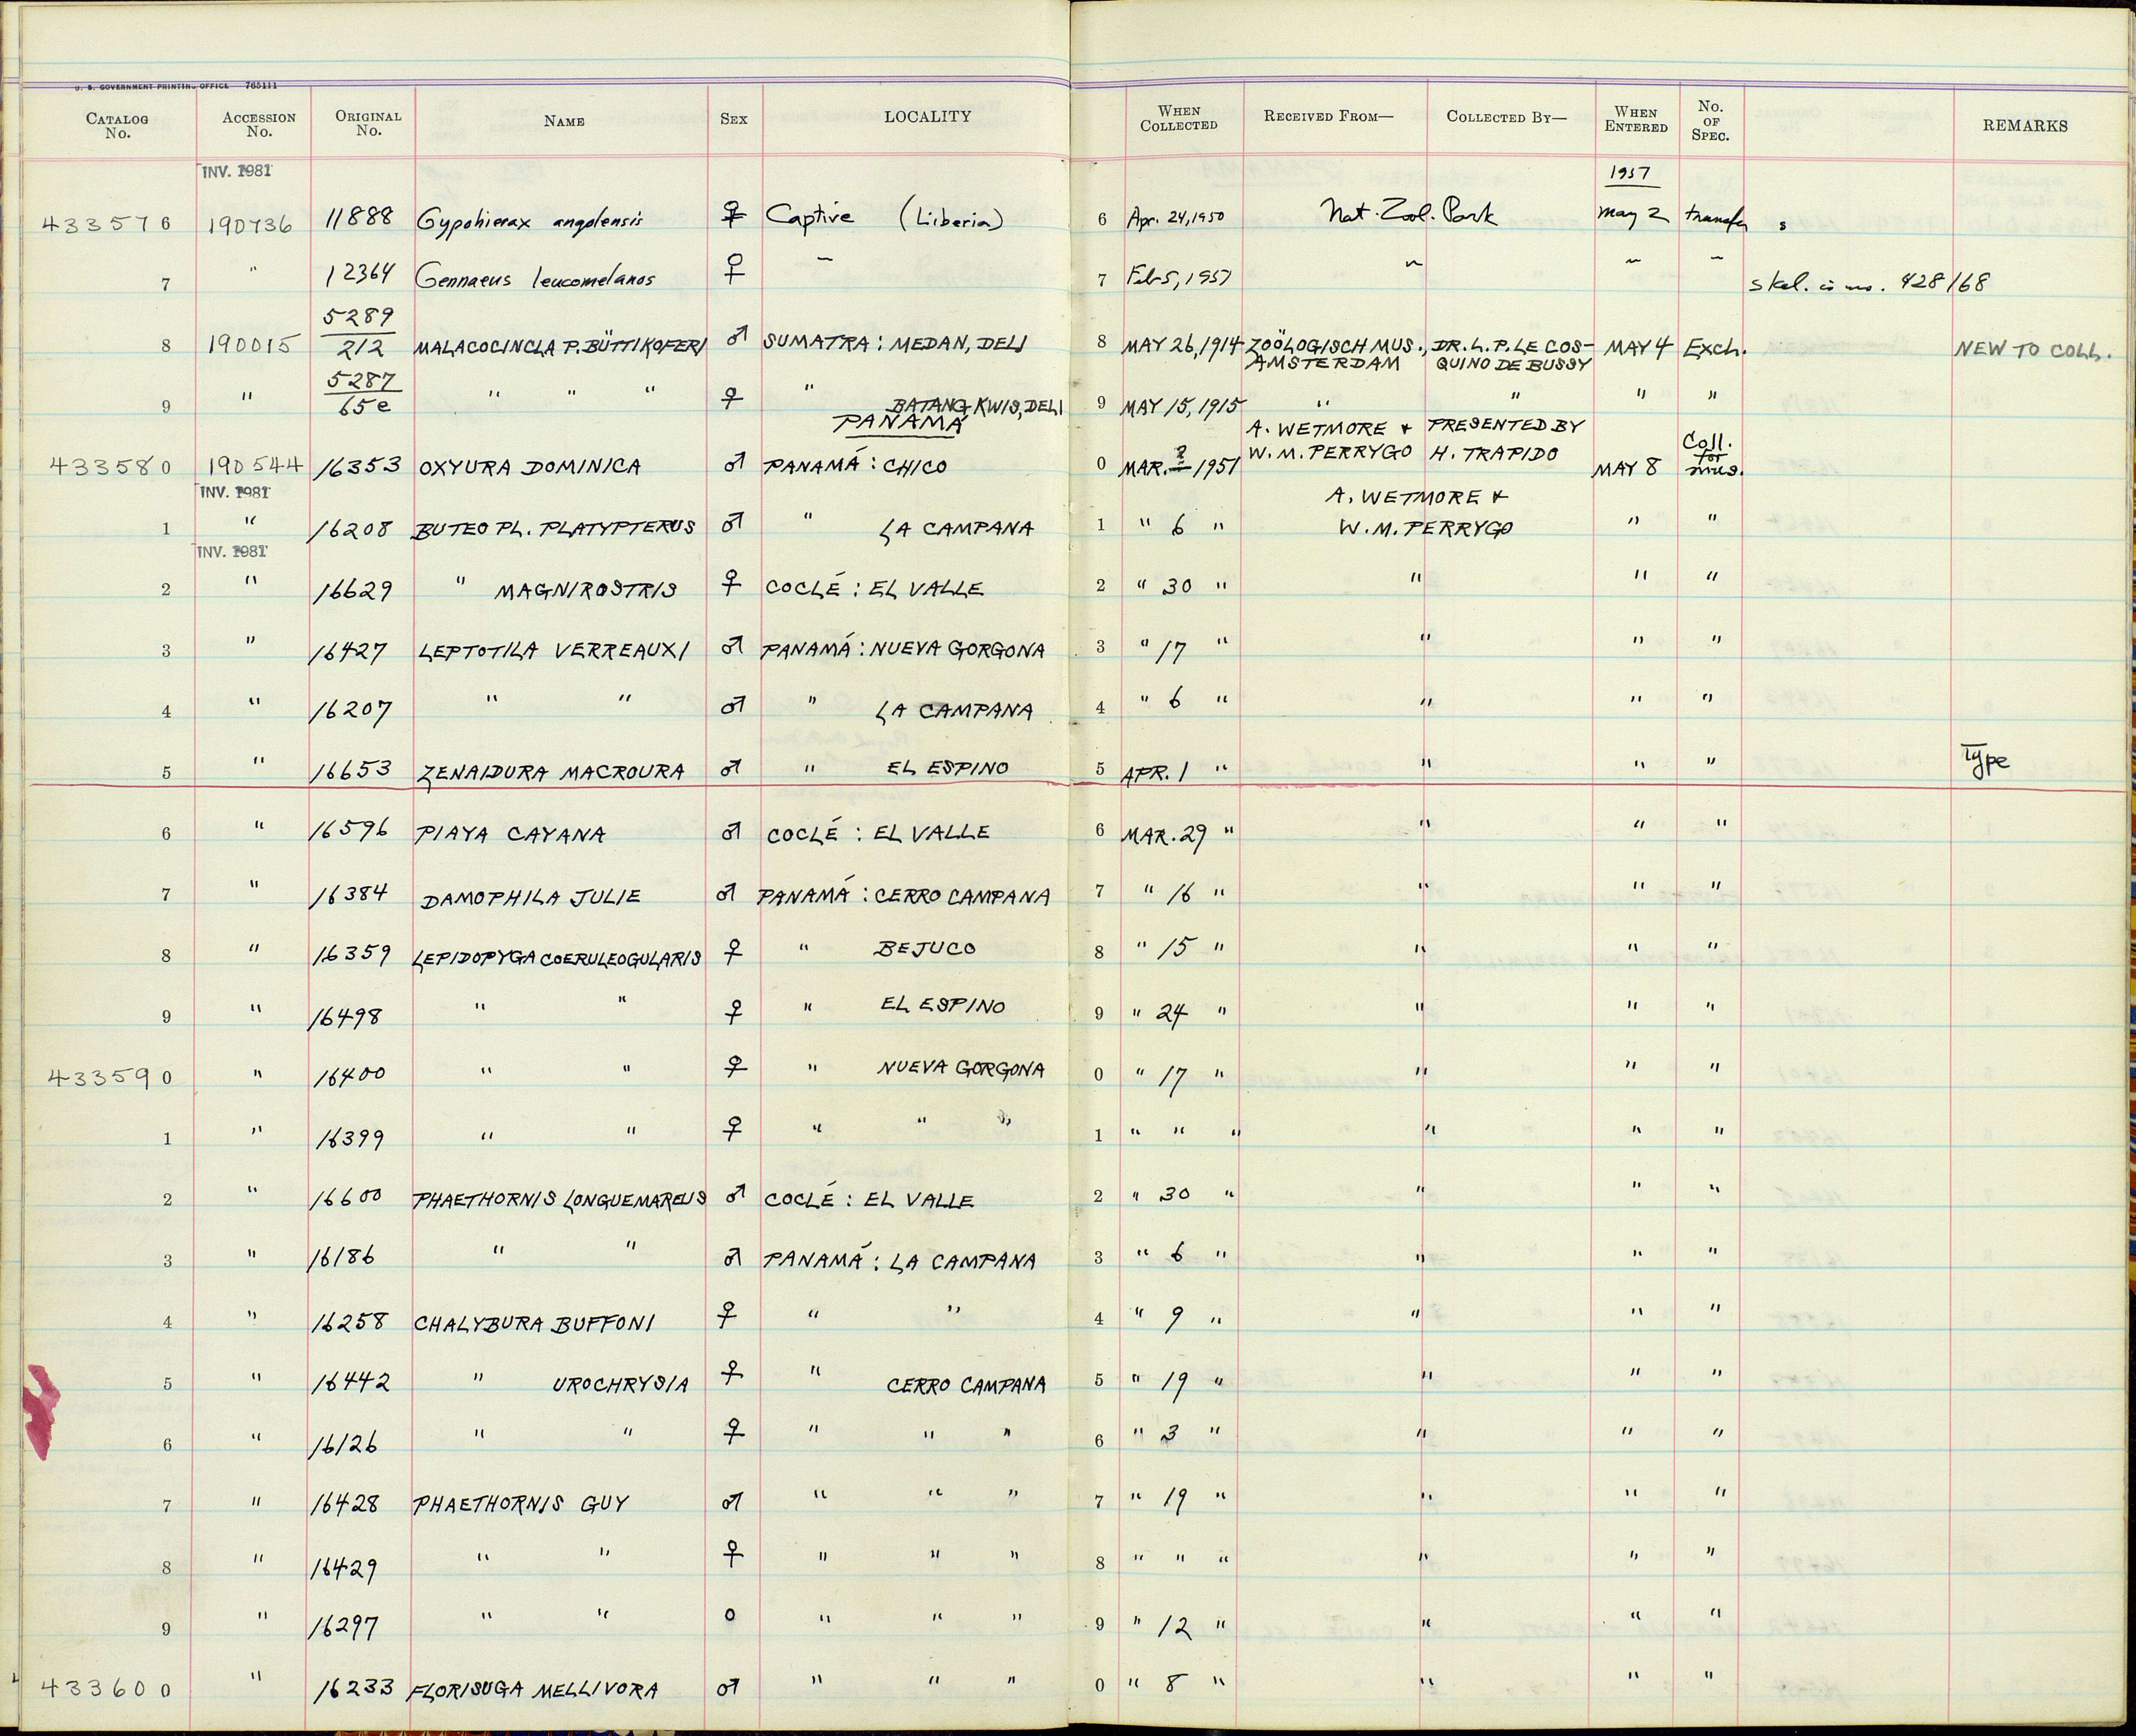 U. S. GOVERNMENT PRINTING OFFICE 765111
CATALOG No. ACCESSION No. ORIGINAL No. NAME SEX LOCALITY WHEN COLLECTED RECEIVED FROM— COLLECTED BY— WHEN ENTERED No. OF SPEC. REMARKS
INV. 1981 1957
433576 190736 11888 Gypohierax angolensis ♀ Captive (Liberia) 6 Apr. 24, 1950 Nat. Zool. Park May 2 transfer s
7 " 12364 Gennaeus leucomelanos ♀ 〃 7 Feb 5, 1957 〃 〃 〃 skel. is no. 428168
8 190015 5289/212 MALACOCINCLA P. BÜTTIKOFERI ♂ SUMATRA : MEDAN, DELI 8 MAY 26, 1914 ZOÖLOGISCH MUS., AMSTERDAM DR. L. P. LE COSQUINO DE BUSSY MAY 4 Exch. NEW TO COLL.
9 " 5287/65e " " " ♀ " BATANG KWIS, DELI 9 MAY 15, 1915 " " " "
PANAMÁ
433580 190544 16353 OXYURA DOMINICA ♂ PANAMÁ : CHICO 0 MAR. ? 1951 A. WETMORE & W. M. PERRYGO PRESENTED BY H. TRAPIDO MAY 8 Coll. for mus.
INV. 1981
1 " 16208 BUTEO PL. PLATYPTERUS ♂ " LA CAMPANA 1 " 6 " A. WETMORE & W. M. PERRYGO " "
INV. 1981
2 " 16629 " MAGNIROSTRIS ♀ COCLÉ : EL VALLE 2 " 30 " " " "
3 " 16427 LEPTOTILA VERREAUXI ♂ PANAMÁ : NUEVA GORGONA 3 " 17 " " " "
4 " 16207 " " ♂ " LA CAMPANA 4 " 6 " " " "
5 " 16653 ZENAIDURA MACROURA ♂ " EL ESPINO 5 APR. 1 " " " " Type
6 " 16596 PIAYA CAYANA ♂ COCLÉ : EL VALLE 6 MAR. 29 " " " "
7 " 16384 DAMOPHILA JULIE ♂ PANAMÁ : CERRO CAMPANA 7 " 16 " " " "
8 " 16359 LEPIDOPYGA COERULEOGULARIS ♀ " BEJUCO 8 " 15 " " " "
9 " 16498 " " ♀ " EL ESPINO 9 " 24 " " " "
433590 " 16400 " " ♀ " NUEVA GORGONA 0 " 17 " " " "
1 " 16399 " " ♀ " " " 1 " " " " " "
2 " 16600 PHAETHORNIS LONGUEMAREUS ♂ COCLÉ : EL VALLE 2 " 30 " " " "
3 " 16186 " " ♂ PANAMÁ : LA CAMPANA 3 " 6 " " " "
4 " 16258 CHALYBURA BUFFONI ♀ " " 4 " 9 " " " "
5 " 16442 " UROCHRYSIA ♀ " CERRO CAMPANA 5 " 19 " " " "
6 " 16126 " " ♀ " " " 6 " 3 " " " "
7 " 16428 PHAETHORNIS GUY ♂ " " " 7 " 19 " " " "
8 " 16429 " " ♀ " " " 8 " " " " " "
9 " 16297 " " o " " " 9 " 12 " " " "
433600 " 16233 FLORISUGA MELLIVORA ♂ " " " 0 " 8 " " " "